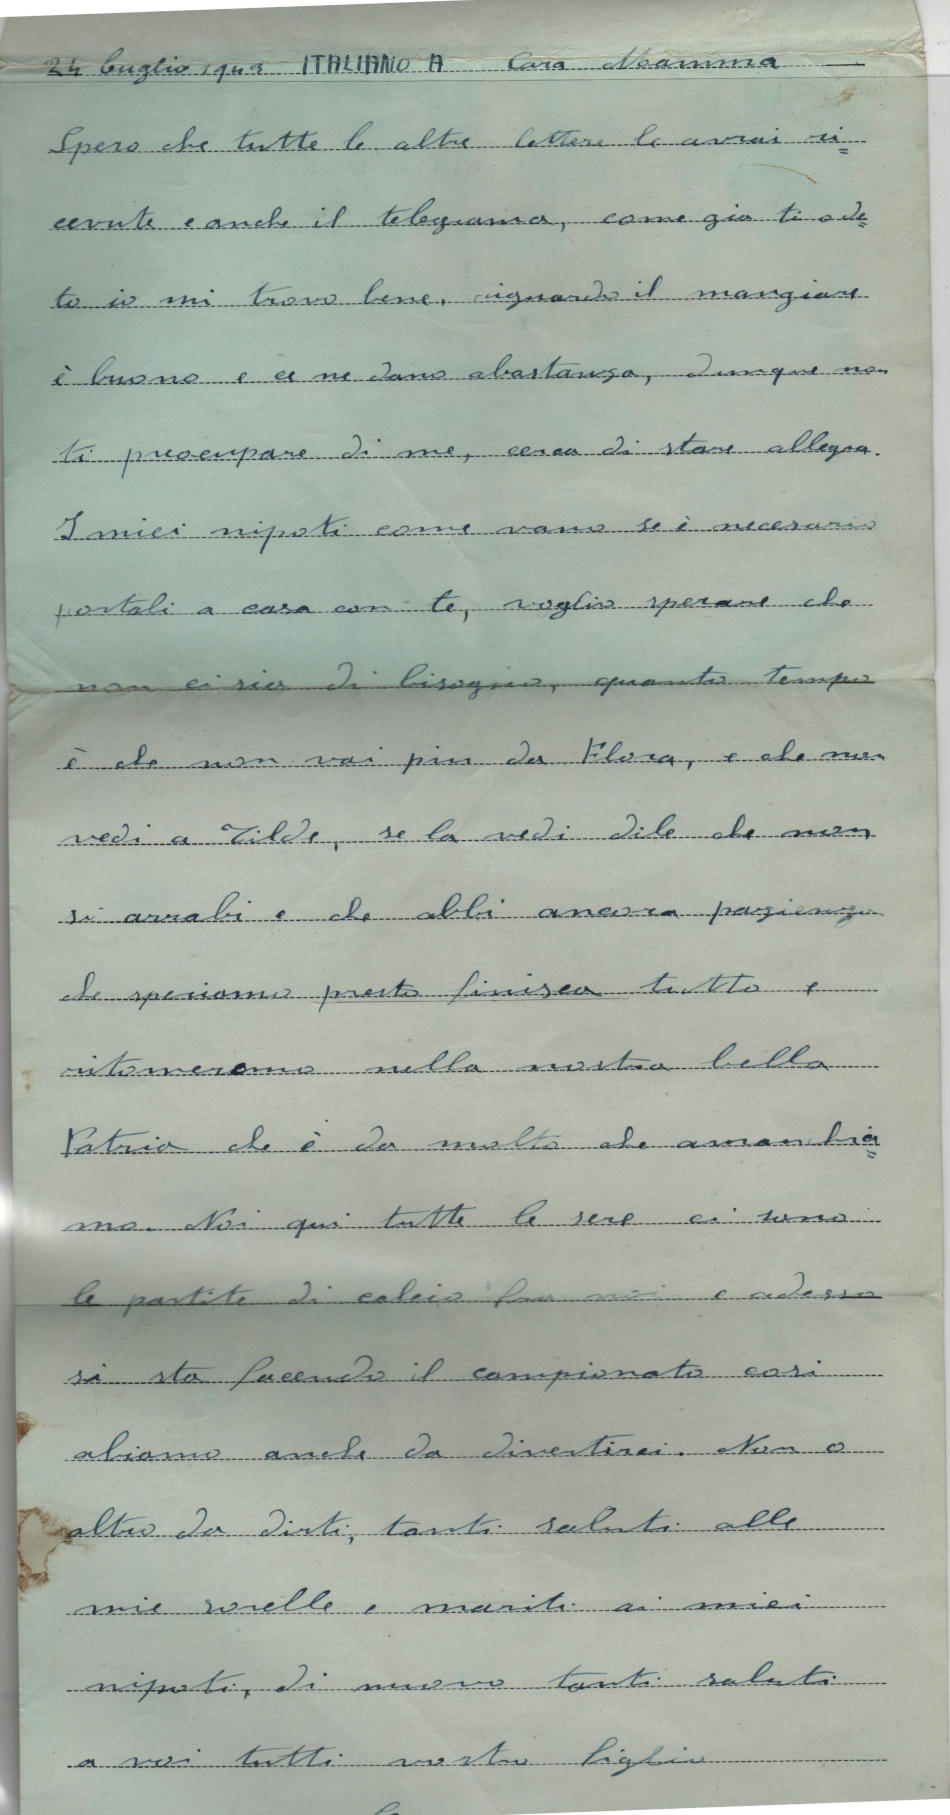 24 luglio 1943 ITALIANO A Cara Mamma
Spero che tutte le altre lettere le avrai ri=
cevute e anche il telegrama, come gia ti o de=
to io mi trovo bene, riguardo il mangiare
è buono e ce ne dano abastanza, dunque non
ti preocupare di me, cerca di stare allegra.
I miei nipoti come vano se è necesario
portali a casa con te, voglio sperare che
non ci sia di bisogno, quanto tempo
è che non vai piu da Flora, e che non
vedi a Tilde, se la vedi dile che non
si arrabi e che abbi ancora pazienza
che speriamo presto finisca tutto e
ritorneremo nella nostra bella
Patria che è da molto che aman hia=
mo. Noi qui tutte le sere ci sono
le partite di calcio fra noi e adesso
si sta facendo il campionato cosi
abiamo anche da divertirci. Non o
altro da dirti, tanti saluti alle
mie sorelle e mariti ai miei
nipoti, di nuovo tanti saluti
a voi tutti vostro figlio